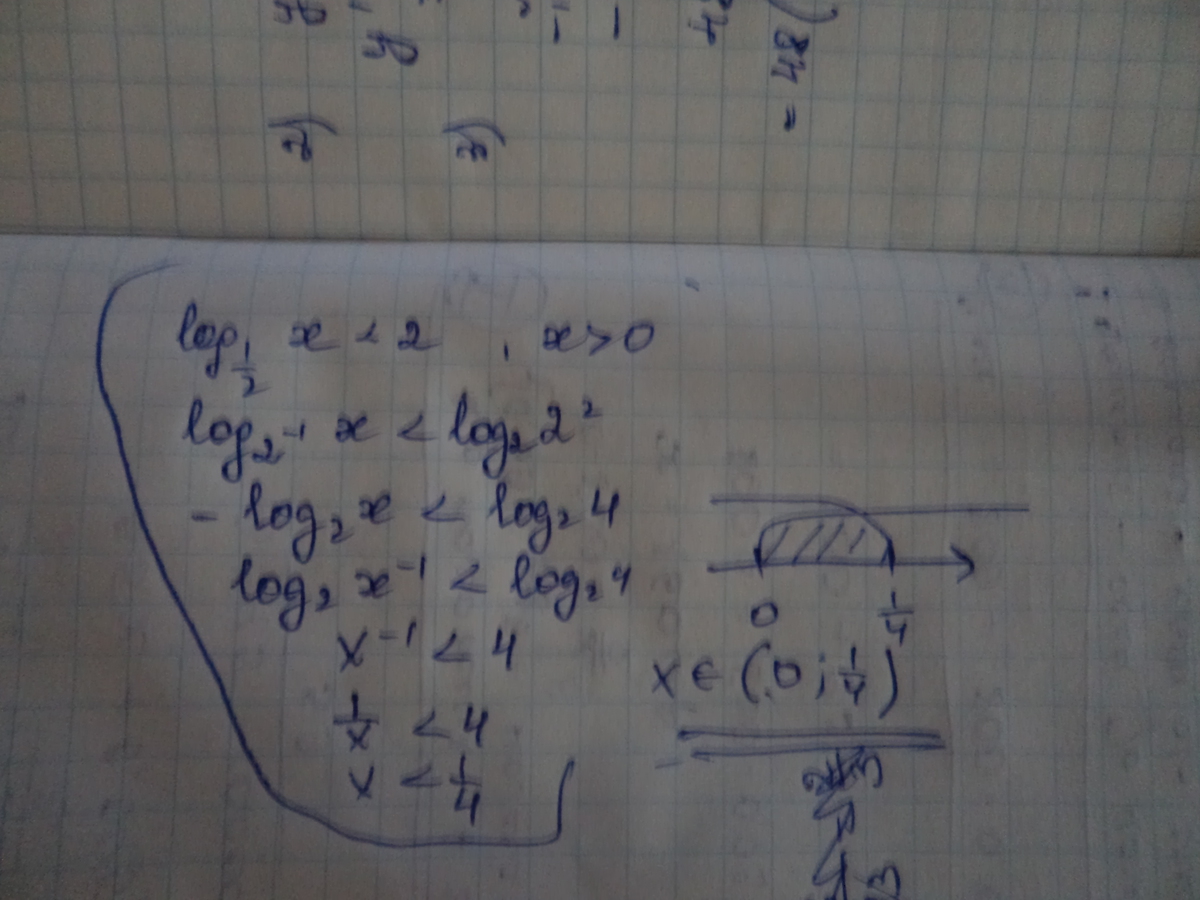 2)
3)
= 48
log_{1/2} x < 2 , x > 0
log_{2^{-1}} x < log_2 2^2
- log_2 x < log_2 4
log_2 x^{-1} < log_2 4
x^{-1} < 4
1/x < 4
x < 1/4
0 1/4
x ∈ (0; 1/4)